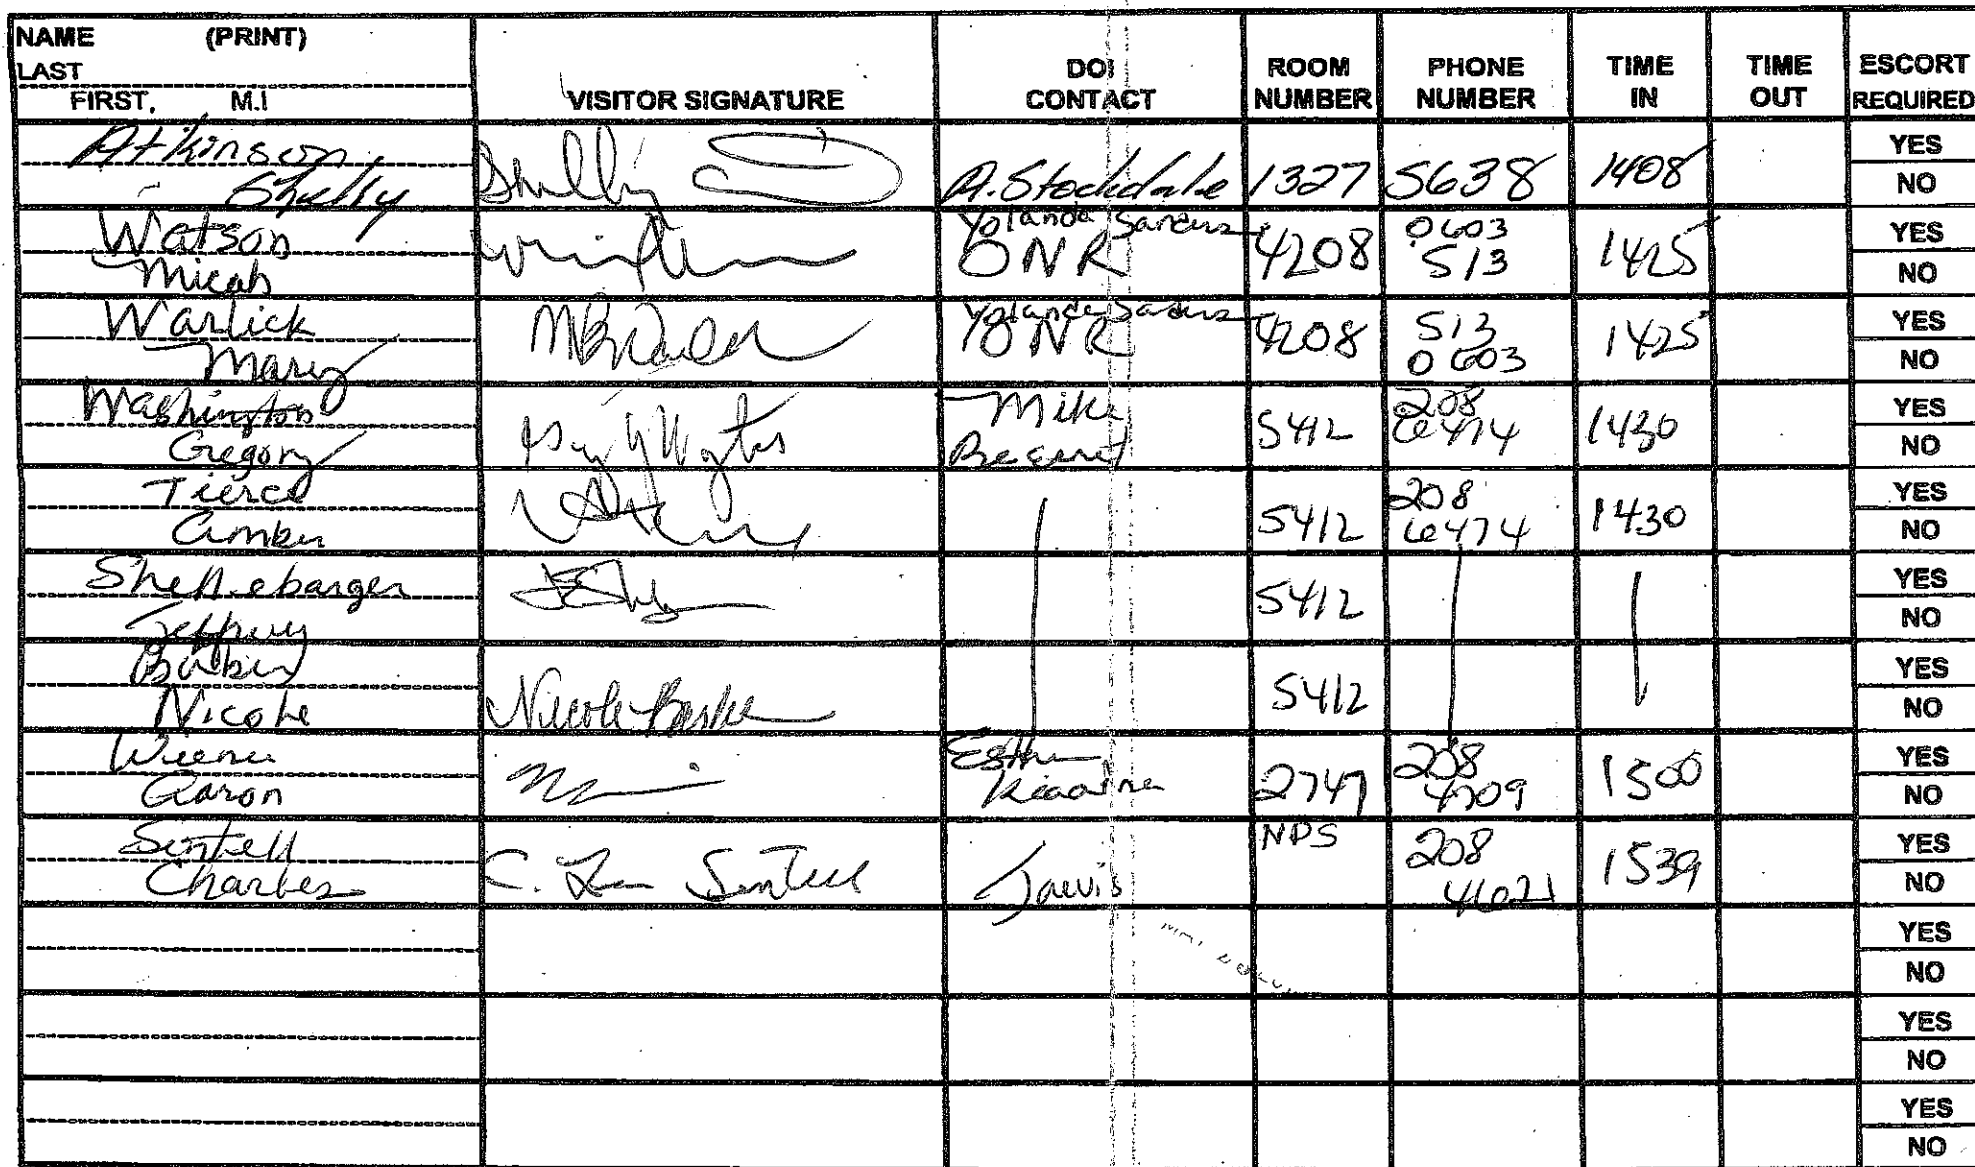 NAME (PRINT)
LAST
FIRST, M.I
VISITOR SIGNATURE
DOI CONTACT
ROOM NUMBER
PHONE NUMBER
TIME IN
TIME OUT
ESCORT REQUIRED
Atkinson
Shelly
Shelly
A. Stockdale
1327
5638
1408
YES
NO
Watson
Micah
Yolanda
ONR
4208
0603
513
1425
YES
NO
Warlick
Mary
Yolanda
ONR
4208
513
0603
1425
YES
NO
Washington
Gregory
Mike
5412
208
6474
1430
YES
NO
Tierce
Amber
5412
208
6474
1430
YES
NO
Shellebarger
Jeffrey
5412
YES
NO
Barber
Nicole
Nicole
5412
YES
NO
Aaron
2747
208
4709
1500
YES
NO
Sintell
Charles
C. Sintell
Jarvis
NPS
208
4621
1539
YES
NO
YES
NO
YES
NO
YES
NO